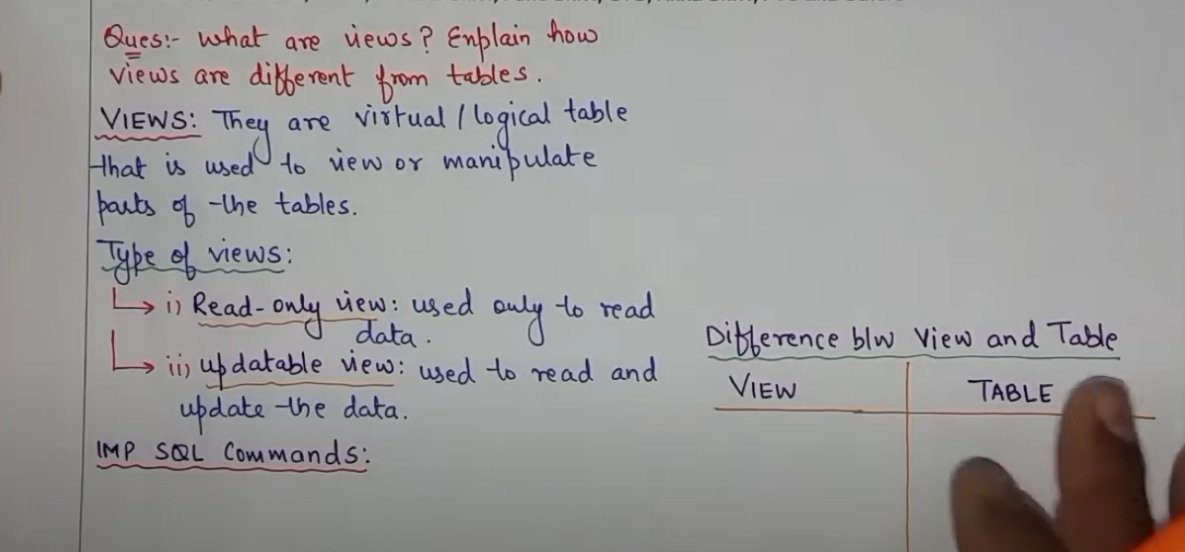 Ques:- What are views? Explain how
views are different from tables.
VIEWS: They are virtual/logical table
that is used to view or manipulate
parts of the tables.
Type of views:
i) Read-only view: used only to read
data.
ii) updatable view: used to read and
update the data.
IMP SQL Commands:
Difference b/w View and Table
VIEW TABLE